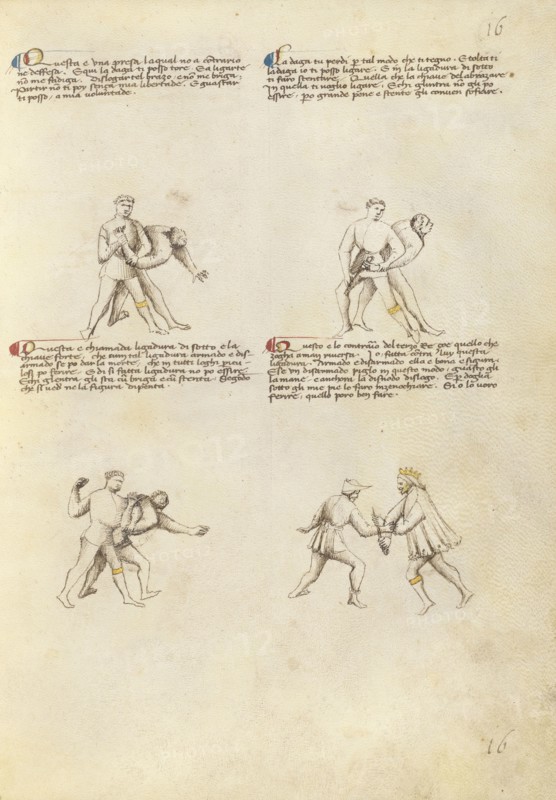 16
Questa e una presa la qual no a contrario
ne deffesa. E qui la daga ti posso tore. E a ligarte
no me fadiga. Dislogar tel brazo e no me briga.
Partir no ti poy senza mia libertade. E guastar
ti posso a mia voluntade.
La daga tu perdi per tal modo che ti tegno. E tolta ti
la daga io ti posso ligare. E in la ligadura di sotto
ti faro stentare. Quella che la chiave del abrazare
In quella ti voglio ligare. E chi gl'intra no gli po
essire. per grande pene e stente gli conven soffrire.
Questa e chiamada ligadura di sotto e la
chiave forte. che cum tal ligadura armado e dis-
armado se po dar la morte. che in tutti loghi pericu-
losi po ferire. E di si fatta ligadura no po essire
E chi gl'entra gli sta cum briga e cum stenta. Segondo
che si vede ne la figura dipenta.
Questo e lo contrario del terzo Re che
zogha a man riversa. Io o fatta contra luy questa
ligadura. Armado e disarmado ella e bona e sigura.
E se un disarmado piglio in questo modo. guasto gli
la mane e anchora la disnodo dislogo. E per doglia
sotto gli mie pie lo faro inzenochiare. E si o lo voro
ferire. quello poro ben fare.
16